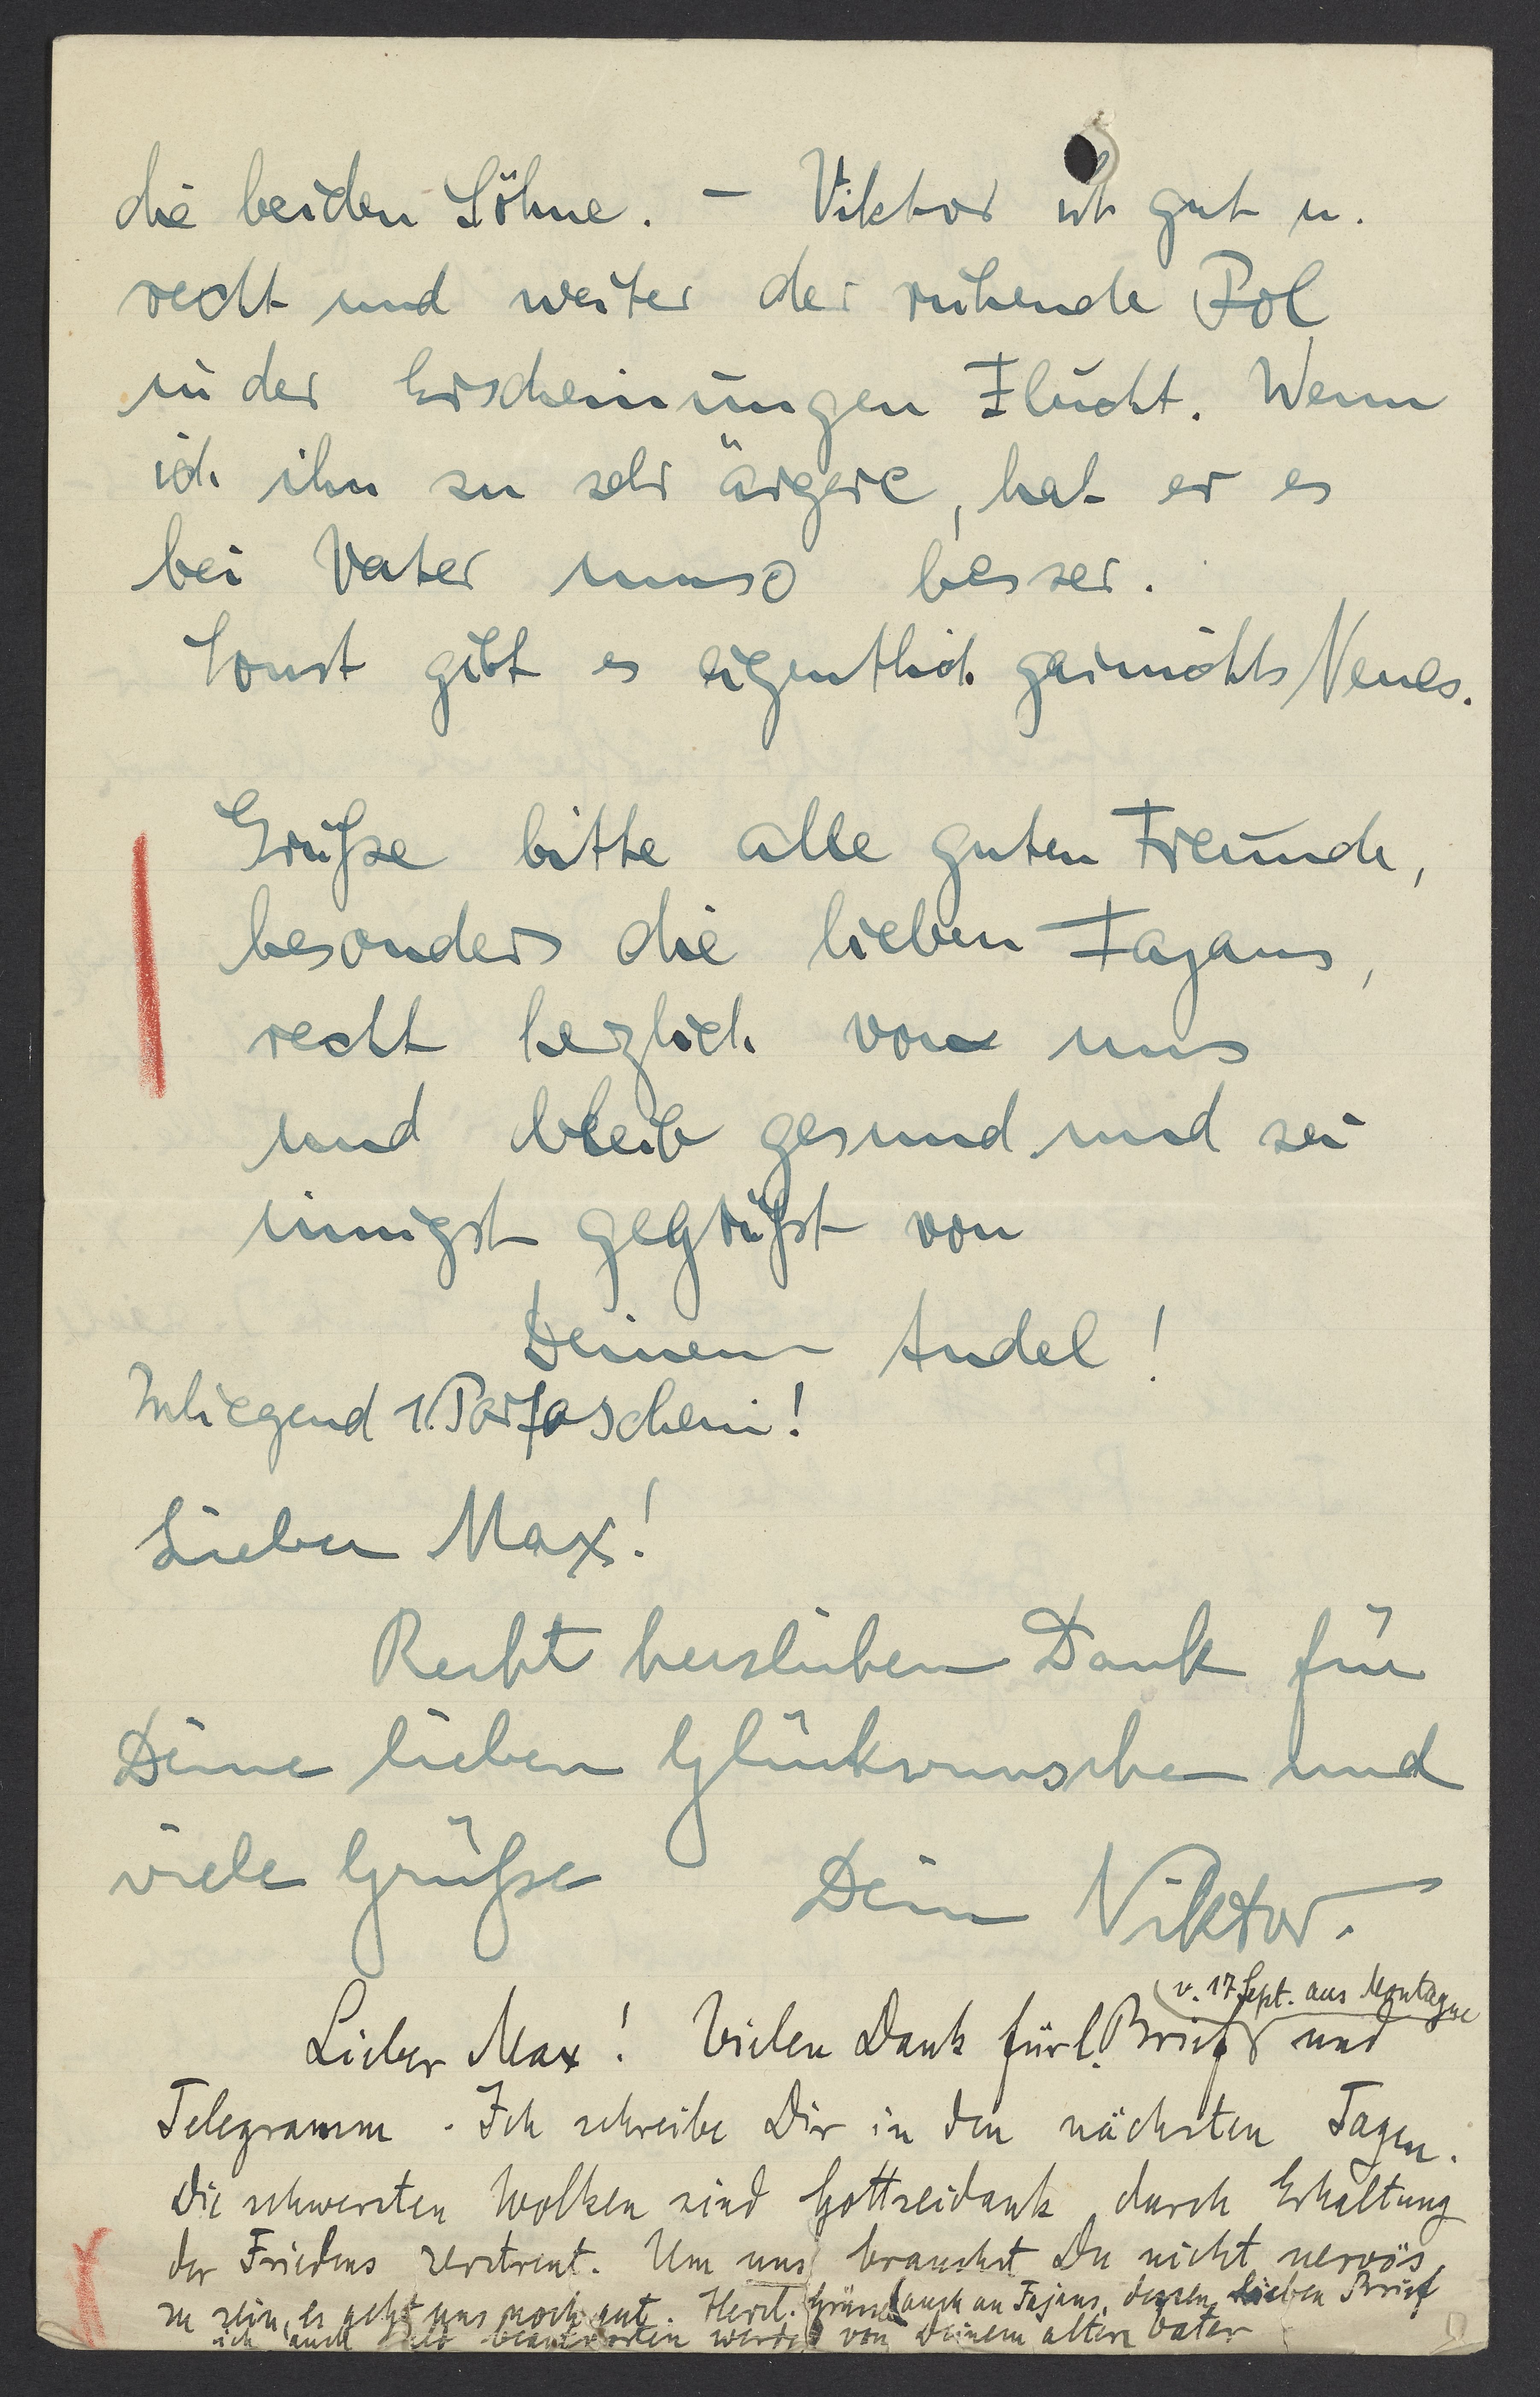 die beiden Söhne. – Viktor ist gut u.
recht und weiter der ruhende Pol
in der Erscheinungen Flucht. Wenn
ich ihn zu sehr ärgere, hat er es
bei Vater umso besser.
Sonst gibt es eigentlich garnichts Neues.
Grüße bitte alle guten Freunde,
besonders die lieben Fajans,
recht herzlich von uns
und bleib gesund und sei
innigst gegrüßt von
Deinem Andel!
Inliegend 1. Portoschein!
Lieber Max!
Recht herzlichen Dank für
Deine lieben Glückwünsche und
viele Grüße Dein Viktor.
v. 17 Sept. aus Montague
Lieber Max! Vielen Dank für l. Brief und
Telegramm. Ich schreibe Dir in den nächsten Tagen.
Die schwersten Wolken sind Gottseidank durch Erhaltung
des Friedens zerstreut. Um uns brauchst Du nicht nervös
zu sein, es geht uns noch gut. Herzl. Grüsse auch an Fajans, dessen lieben Brief
ich auch beantworten werde von Deinem alten Vater